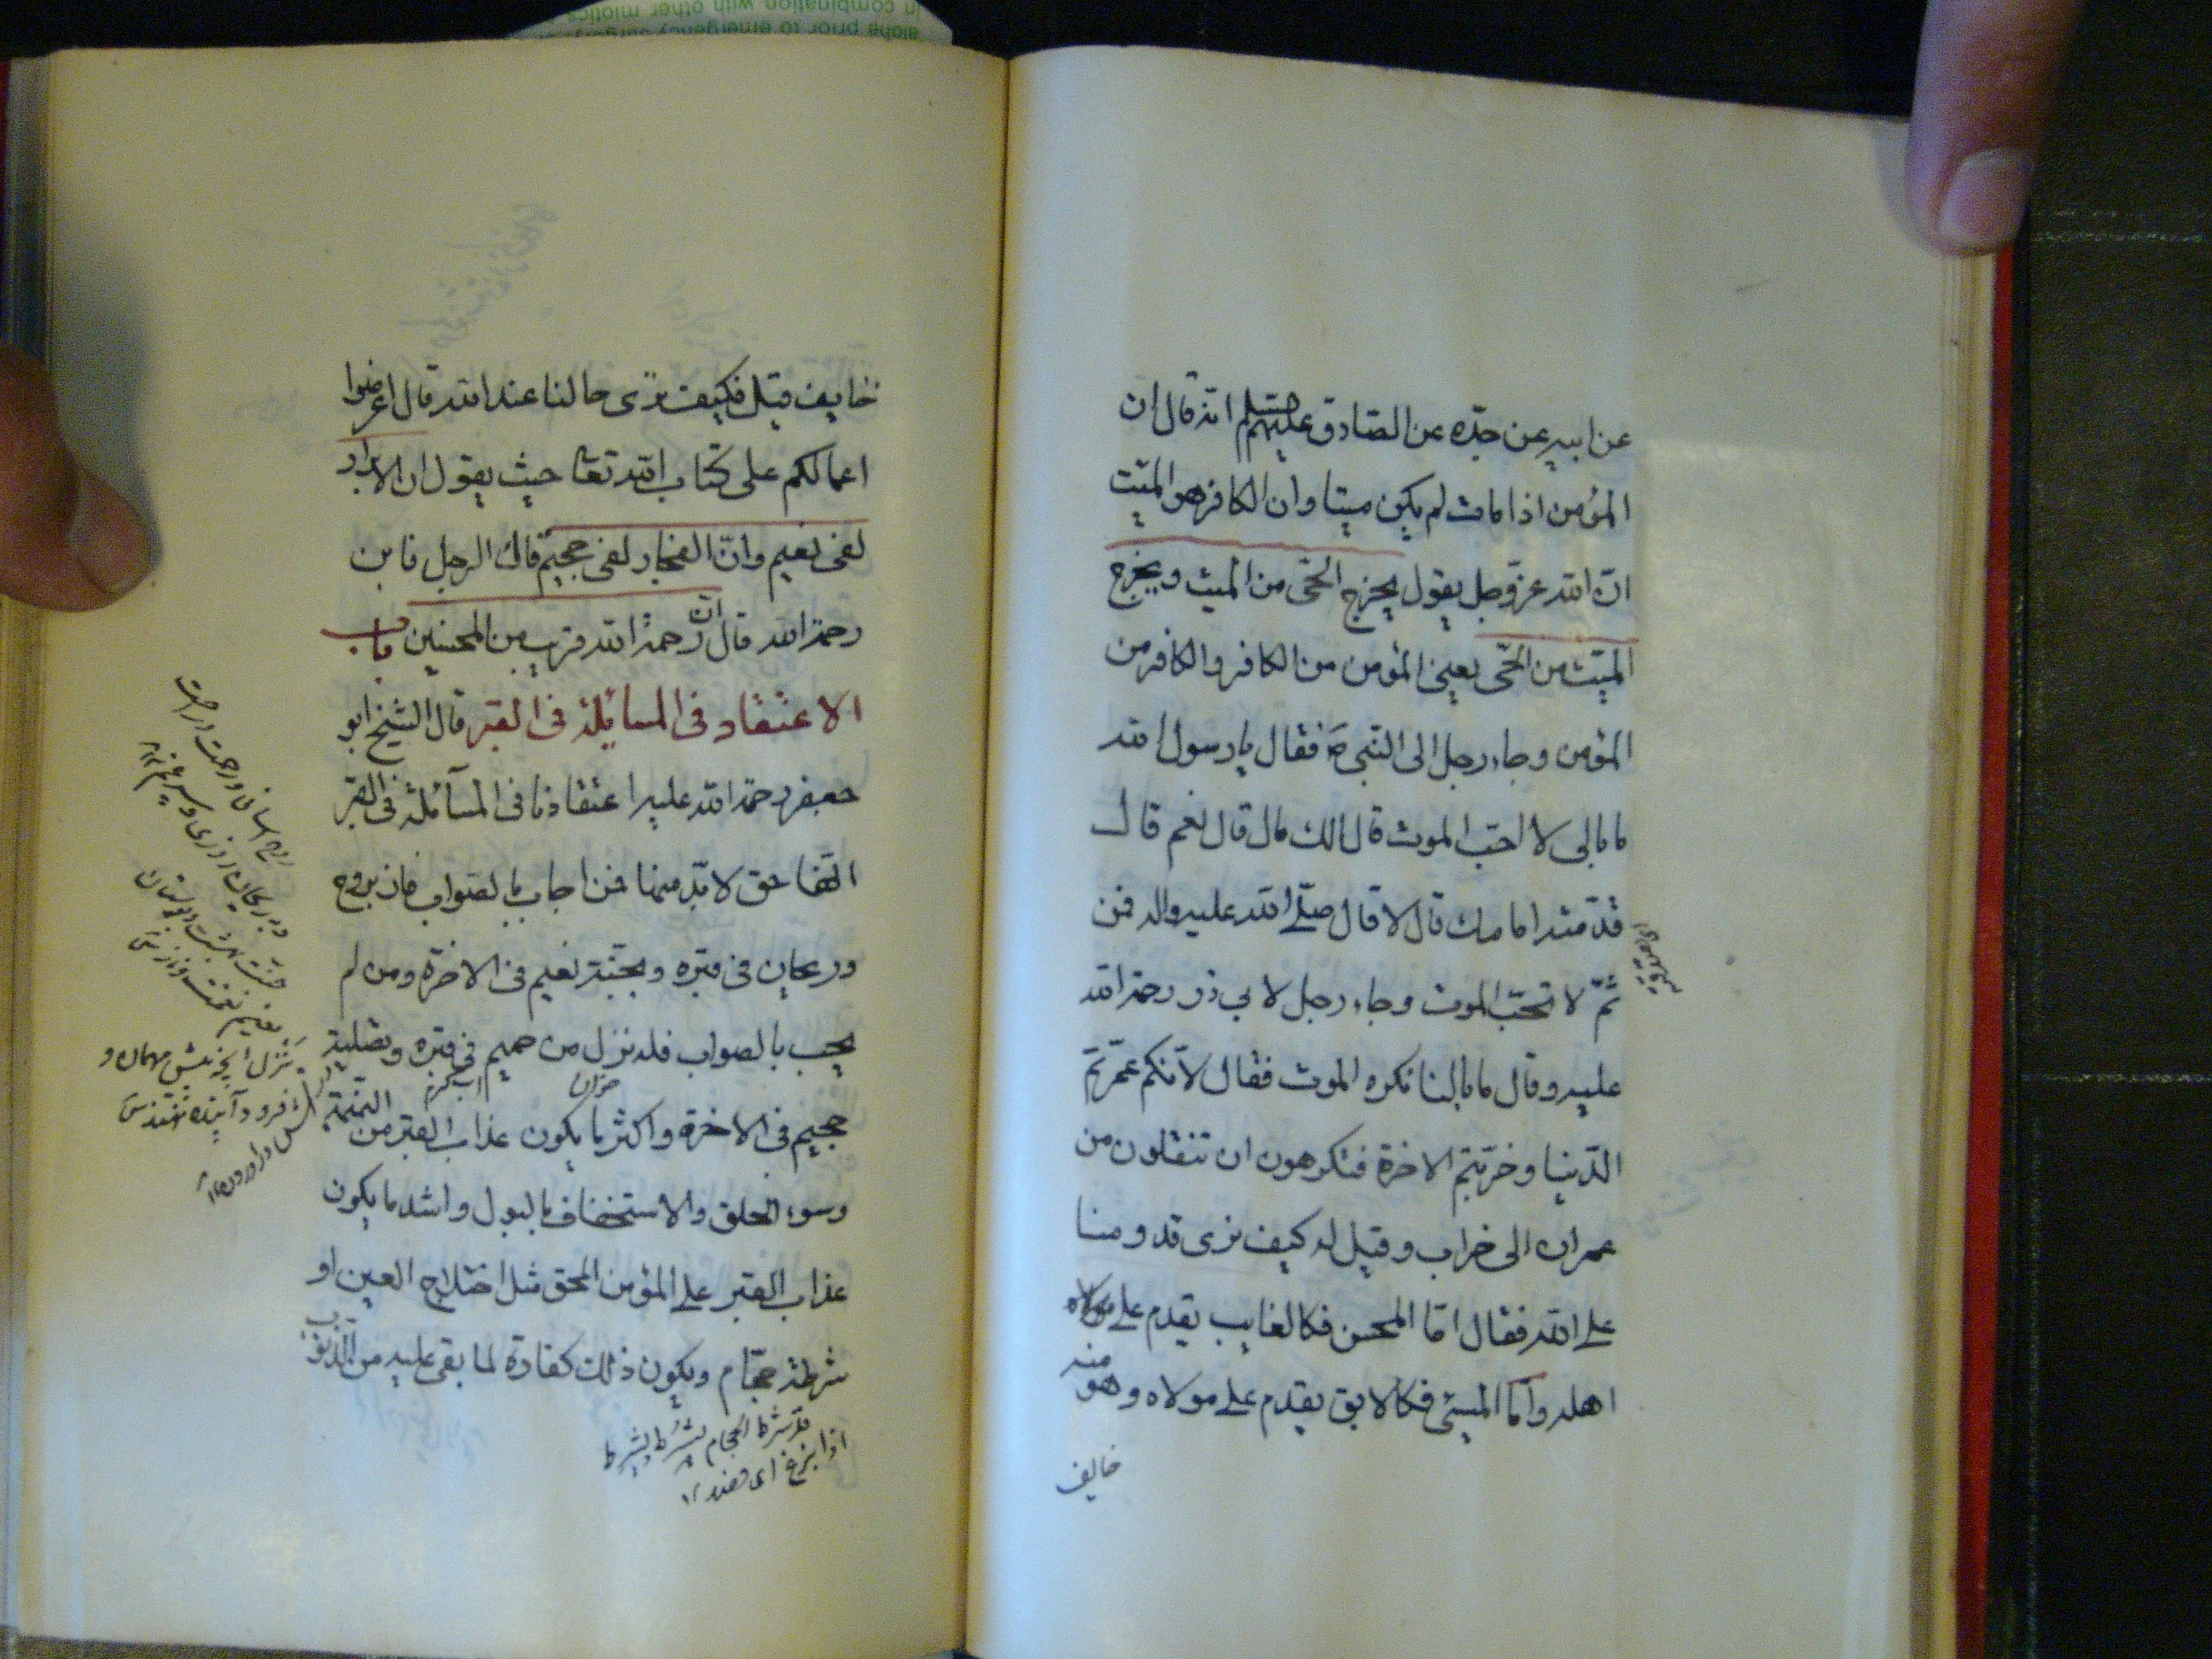 عن ابيه عن جدّه عن الصّادق عليهم السلم انه قال ان
المؤمن اذا مات لم يكن ميتا وان الكافر هو الميّت
انّ الله عزّ وجل يقول يخرج الحىّ من الميت ويخرج
الميّت من الحىّ يعنى المؤمن من الكافر والكافر من
المؤمن وجاء رجل الى النّبى ص فقال يا رسول الله
ما بالى لا احبّ الموت قال الك مال قال نعم قال
قدّمته امامك قال لا قال صلّى الله عليه واله فمن
ثمّ لا تحبّ الموت وجاء رجل لابى ذر رحمة الله
عليه وقال ما بالنا نكره الموت فقال لأنّكم عمّرتم
الدّنيا وخرّبتم الاخرة فتكرهون ان تنقلون من
عمران الى خراب وقيل له كيف ترى قدومنا
على الله فقال امّا المحسن فكالغايب يقدم على
اهله وامّا المسئ فكالابق يقدم على مولاه وهو منه
خايف
خايف قيل فكيف ترى حالنا عند الله قال اعرضوا
اعمالكم على كتاب الله تعا حيث يقول ان الابرار
لفى نعيم وانّ الفجار لفى جحيم قال الرجل فاين
رحمة الله قال انّ رحمة الله قريب من المحسنين باب
الاعتقاد فى المسائلة فى القبر قال الشيخ ابو
جعفر رحمة الله عليه اعتقادنا فى المسآئلة فى القبر
انّها حق لا بدّ منها فمن اجاب بالصواب فاز بروح
وريحان فى قبره وبجنّة نعيم فى الاخرة ومن لم
يجب بالصواب فله نزل من حميم فى قبره وتصلية
جحيم فى الاخرة واكثر ما يكون عذاب القبر من النميمة
وسوء الخلق والاستخفاف بالبول واشد ما يكون
عذاب القبر على المؤمن المحق مثل اختلاج العين او
شرطة حجّام ويكون ذلك كفارة لما بقى عليه من الذنوب
شرط الحجام يشرُط ويشرِط
اذا بزغ اى فصد ١٢
alone prior to emergency surgery
in combination with other miotics